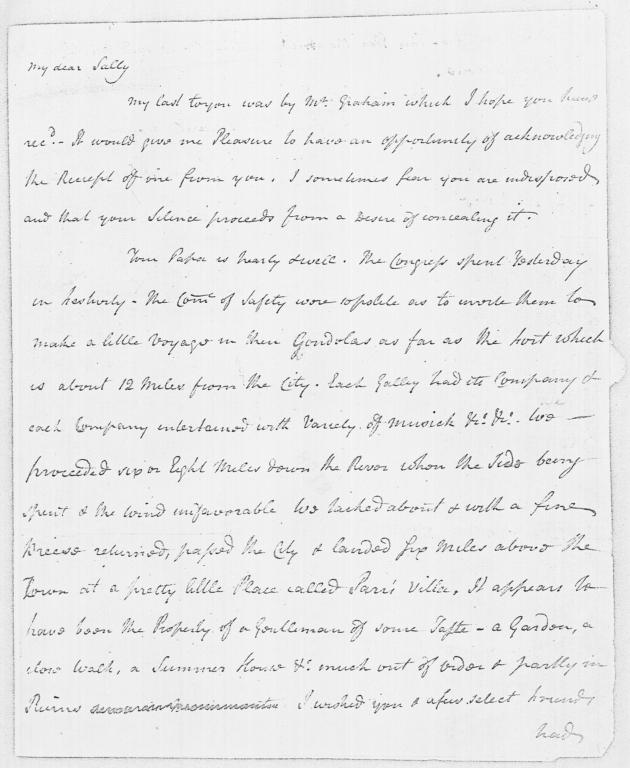 My dear Sally
My last to you was by Mr. Graham which I hope you have
recd. - It would give me Pleasure to have an opportunity of acknowledging
the Receipt of one from you. I sometimes fear you are indisposed,
and that your Silence proceeds from a Desire of concealing it.
Your Papa is hearty & well. The Congress spent Yesterday
in festivity - The Come. of Safety were so polite as to invite them to
make a little Voyage in their Gondolas as far as the fort which
is about 12 Miles from the City. Each Galley had its Company &
each Company entertained with Variety of Musick &c. &c. We —
proceeded six or Eight Miles down the River when the Tide being
spent & the wind unfavorable We tacked about & with a fine
Breeze returned, passed the City & landed six Miles above the
Town at a pretty little Place called Parr's Villa. It appears to
have been the Property of a Gentleman of some Taste - a Garden, a
close walk, a Summer House &c. much out of order & partly in
Ruins I wished you & a few select friends
had